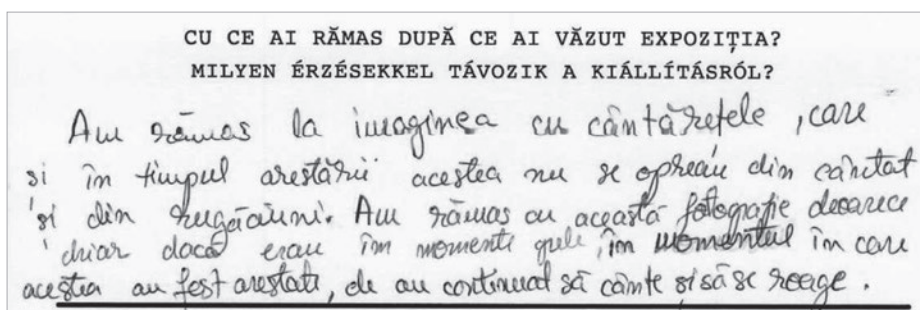 CU CE AI RĂMAS DUPĂ CE AI VĂZUT EXPOZIȚIA?
MILYEN ÉRZÉSEKKEL TÁVOZIK A KIÁLLÍTÁSRÓL?
Am rămas la imaginea cu cântărețele, care
și în timpul arestării acestea nu se opreau din cântat
și din rugăciuni. Am rămas cu această fotografie deoarece
chiar dacă erau în momente grele, în momentul în care
aceștea au fost arestati, ele au continuat să cânte și să se roage.